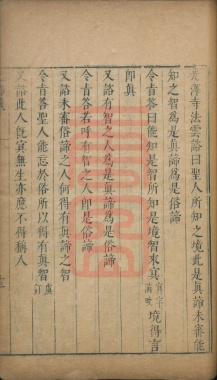 光澤寺法雲諮曰聖人所知之境此是真諦未審能
知之智為是真諦為是俗諦
令旨答曰能知是智所知是境智來冥境得言
即真
又諮有智之人為是真諦為是俗諦
令旨答若呼有智之人即是俗諦
又諮未審俗諦之人何得有真諦之智
令旨答聖人能忘於俗所以得有真智
又諮此人既冥無生亦應不得稱人